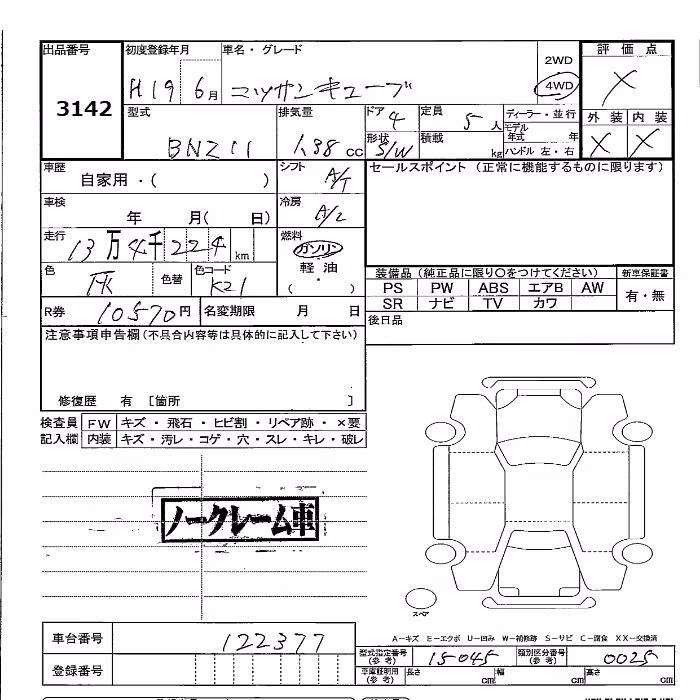 出品番号 3142
初度登録年月 H19 6月
車名・グレード ニッサンキューブ
2WD
4WD
評価点 X
外装 内装
X X
型式 BNZ11
排気量 1.38cc
ドア 4
形状 S/W
定員 5人
積載 kg
ディーラー・並行
モデル年式 年
ハンドル 左・右
車歴 自家用・( )
シフト A/T
セールスポイント (正常に機能するものに限ります)
車検 年 月( 日)
冷房 A/C
走行 13万4千224km
燃料 ガソリン
軽油
( ・ )
色 色替 色コード K21
装備品(純正品に限り〇をつけてください) 新車保証書
PS PW ABS エアB AW 有・無
SR ナビ TV カワ
R券 10570円
名変期限 月 日
後日品
注意事項申告欄(不具合内容等は具体的に記入して下さい)
修復歴 有 [箇所 ]
検査員記入欄
FW キズ・飛石・ヒビ割・リペア跡・×要
内装 キズ・汚レ・コゲ・穴・スレ・キレ・破レ
ノークレーム車
スペア
A-キズ E-エクボ U-凹み W-補修跡 S-サビ C-腐食 XX-交換済
車台番号 122377
型式指定番号(参考) 15045
類別区分番号(参考) 0025
登録番号
車庫証明用(参考) 長さ cm 幅 cm 高さ cm